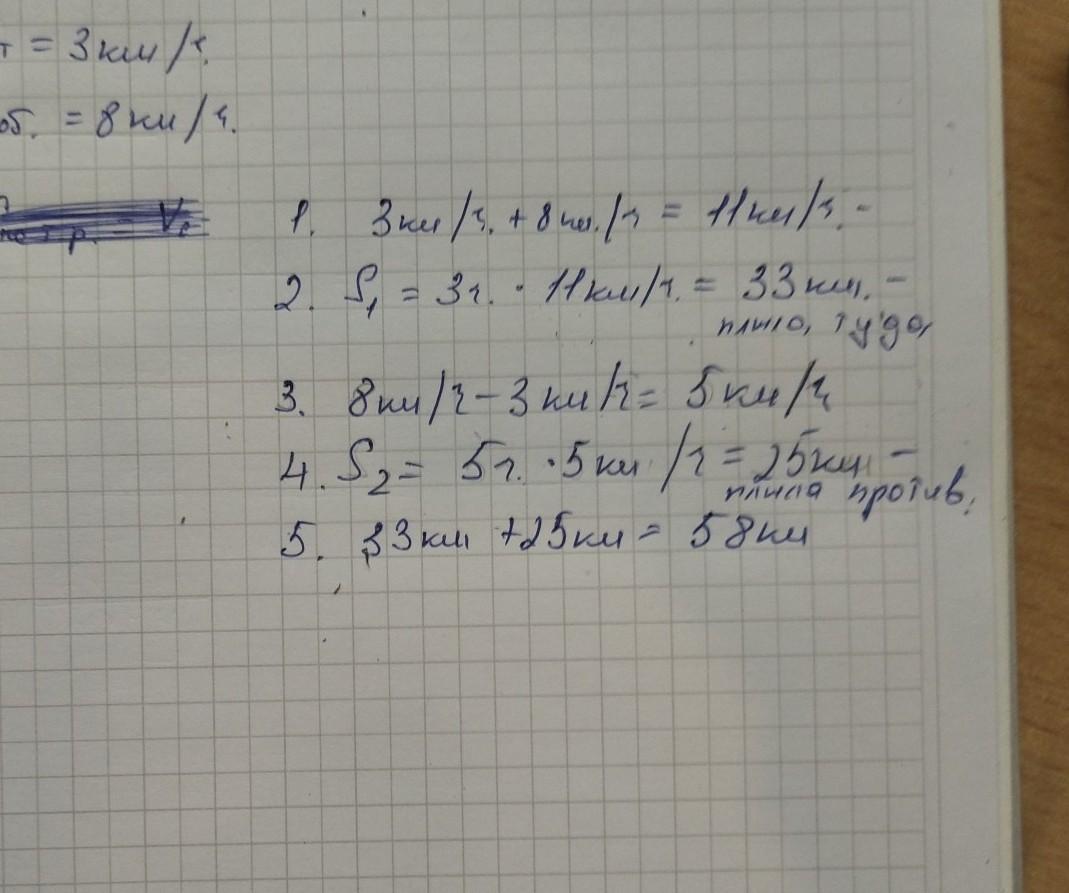 т = 3 км/ч.
об. = 8 км/ч.
1. 3 км/ч. + 8 км./ч = 11 км/ч. -
2. S₁ = 3ч. · 11 км/ч. = 33 км. -
плыла, туда,
3. 8 км/ч - 3 км/ч = 5 км/ч
4. S₂ = 5ч. · 5 км/ч = 25 км -
плыла против.
5. 33 км + 25 км = 58 км